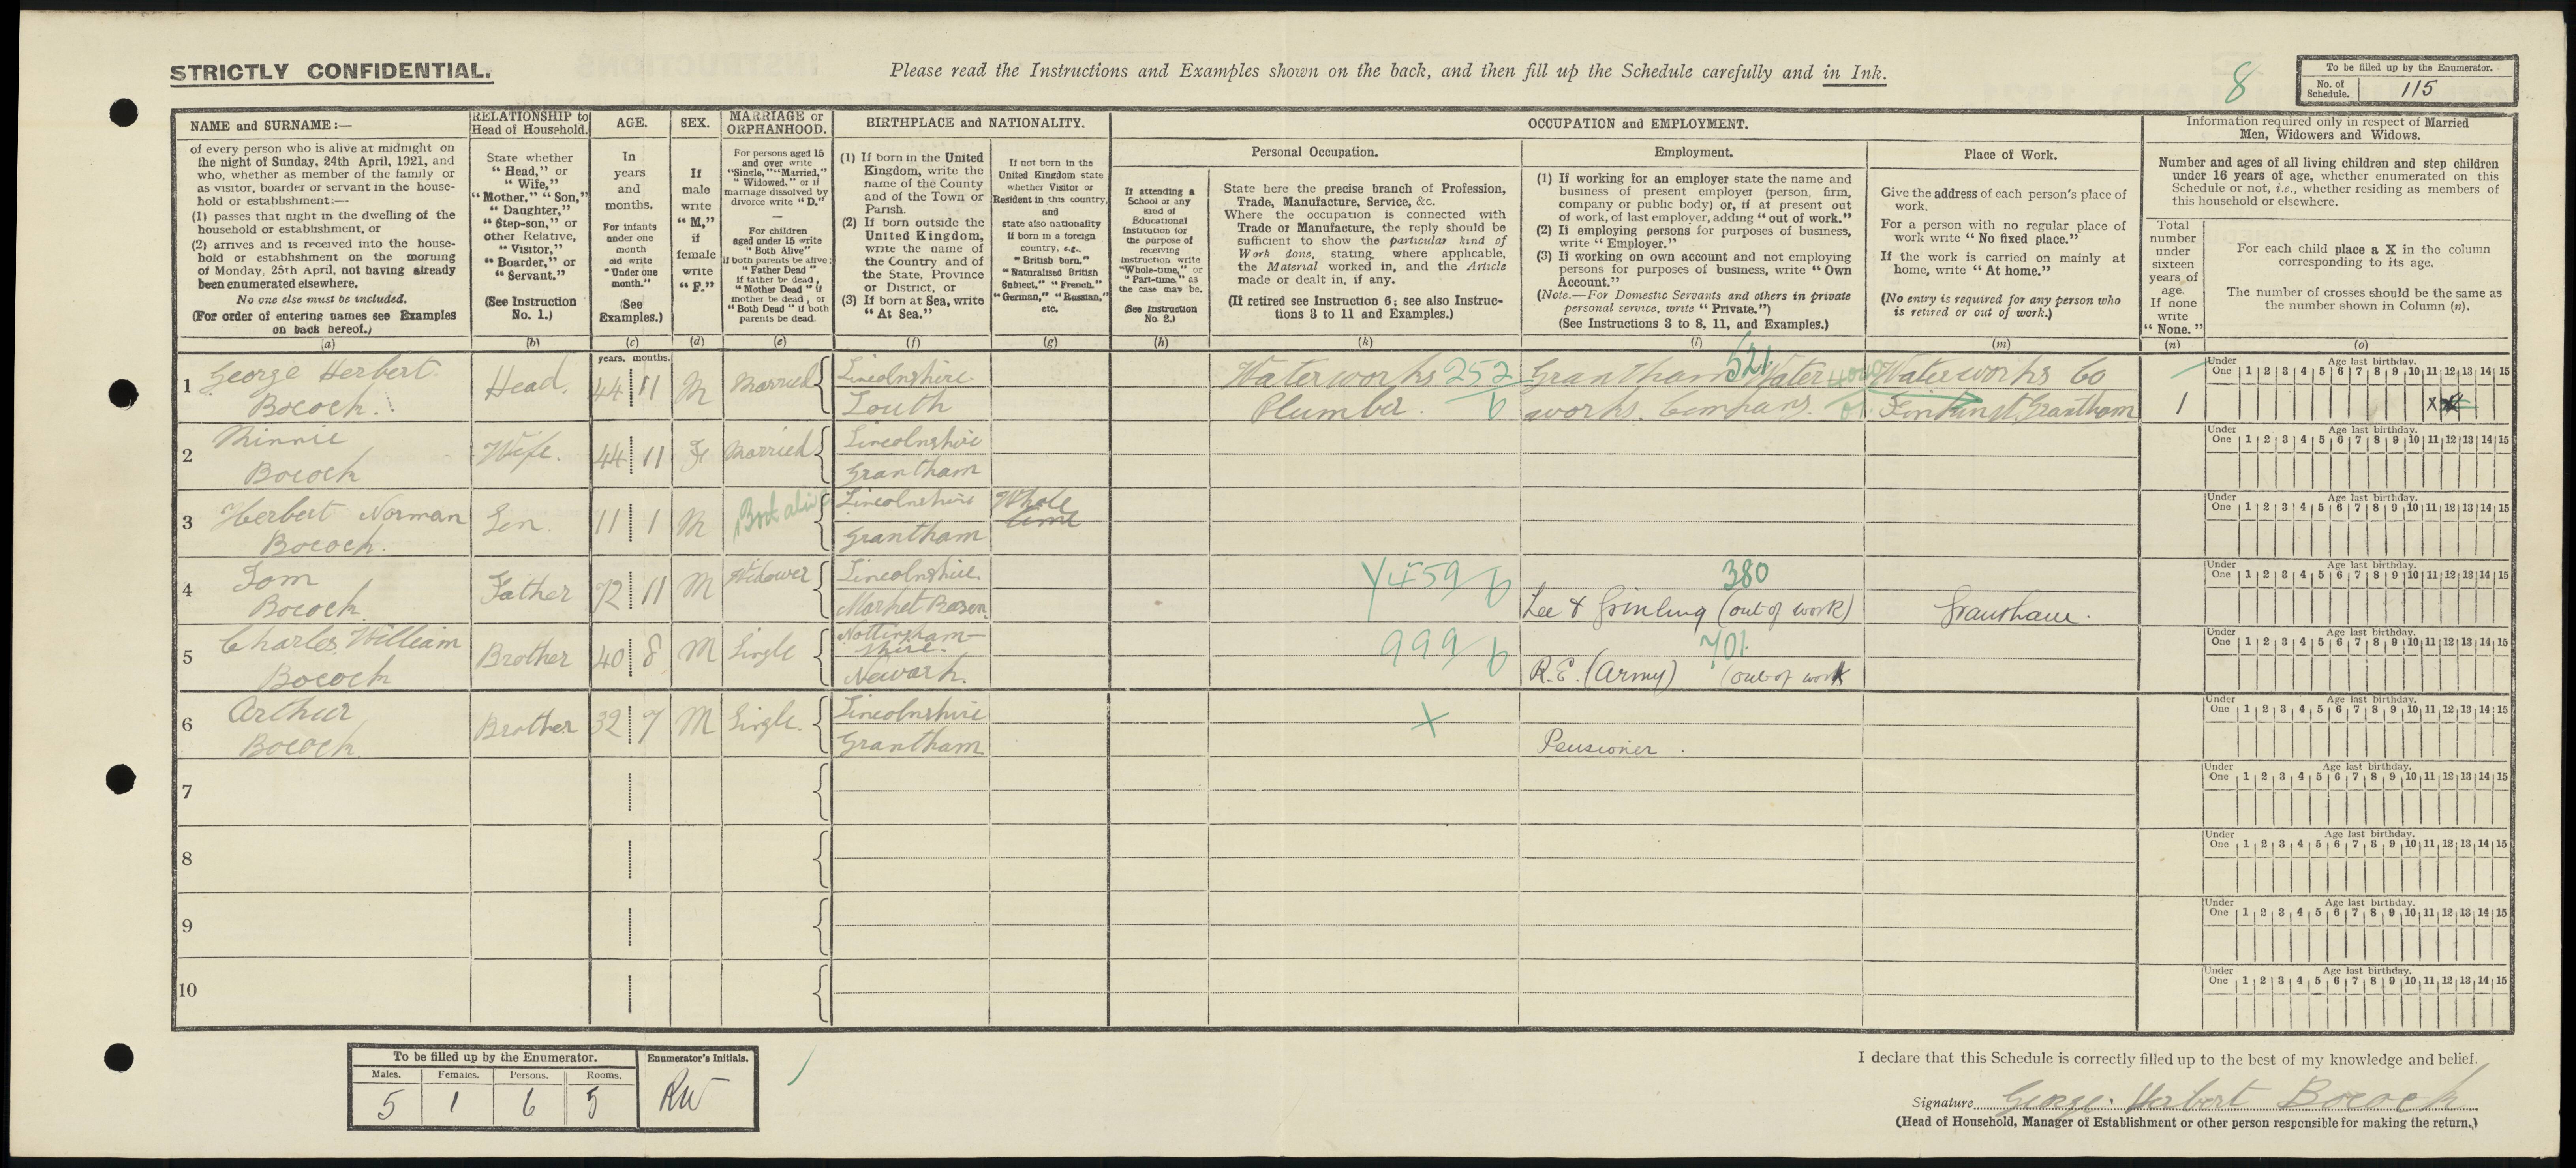 STRICTLY CONFIDENTIAL.
Please read the Instructions and Examples shown on the back, and then fill up the Schedule carefully and in Ink.
8
To be filled up by the Enumerator.
No. of Schedule. 115
NAME and SURNAME:—
of every person who is alive at midnight on
the night of Sunday, 24th April, 1921, and
who, whether as member of the family or
as visitor, boarder or servant in the house-
hold or establishment:—
(1) passes that night in the dwelling of the
household or establishment, or
(2) arrives and is received into the house-
hold or establishment on the morning
of Monday, 25th April, not having already
been enumerated elsewhere.
No one else must be included.
(For order of entering names see Examples
on back hereof.)
(a)
RELATIONSHIP to
Head of Household.
State whether
"Head," or
"Wife,"
"Mother," "Son,"
"Daughter,"
"Step-son," or
other Relative,
"Visitor,"
"Boarder," or
"Servant."
(See Instruction
No. 1.)
(b)
AGE.
In
years
and
months.
For infants
under one
month
old write
"Under one
month."
(See
Examples.)
(c)
SEX.
If
male
write
"M,"
if
female
write
"F."
(d)
MARRIAGE or
ORPHANHOOD.
For persons aged 15
and over write
"Single," "Married,"
"Widowed," or if
marriage dissolved by
divorce write "D."
—
For children
aged under 15 write
"Both Alive"
if both parents be alive;
"Father Dead"
if father be dead,
"Mother Dead" if
mother be dead, or
"Both Dead" if both
parents be dead.
(e)
BIRTHPLACE and NATIONALITY.
(1) If born in the United
Kingdom, write the
name of the County
and of the Town or
Parish.
(2) If born outside the
United Kingdom,
write the name of
the Country and of
the State, Province
or District, or
(3) If born at Sea, write
"At Sea."
(f)
If not born in the
United Kingdom state
whether Visitor or
Resident in this country,
and
state also nationality
if born in a foreign
country, e.g.,
"British born,"
"Naturalised British
Subject," "French,"
"German," "Russian,"
etc.
(g)
OCCUPATION and EMPLOYMENT.
Personal Occupation.
If attending a
School or any
kind of
Educational
Institution for
the purpose of
receiving
instruction write
"Whole-time," or
"Part-time," as
the case may be.
(See Instruction
No. 2.)
(h)
State here the precise branch of Profession,
Trade, Manufacture, Service, &c.
Where the occupation is connected with
Trade or Manufacture, the reply should be
sufficient to show the particular kind of
Work done, stating, where applicable,
the Material worked in, and the Article
made or dealt in, if any.
(If retired see Instruction 6; see also Instruc-
tions 3 to 11 and Examples.)
(k)
Employment.
(1) If working for an employer state the name and
business of present employer (person, firm,
company or public body) or, if at present out
of work, of last employer, adding "out of work."
(2) If employing persons for purposes of business,
write "Employer."
(3) If working on own account and not employing
persons for purposes of business, write "Own
Account."
(Note.—For Domestic Servants and others in private
personal service, write "Private.")
(See Instructions 3 to 8, 11, and Examples.)
(l)
Place of Work.
Give the address of each person's place of
work.
For a person with no regular place of
work write "No fixed place."
If the work is carried on mainly at
home, write "At home."
(No entry is required for any person who
is retired or out of work.)
(m)
Information required only in respect of Married
Men, Widowers and Widows.
Number and ages of all living children and step children
under 16 years of age, whether enumerated on this
Schedule or not, i.e., whether residing as members of
this household or elsewhere.
Total
number
under
sixteen
years of
age.
If none
write
"None."
(n)
For each child place a X in the column
corresponding to its age.
The number of crosses should be the same as
the number shown in Column (n).
(o)
years. months.
1 George Herbert Head. 44 11 M Married Lincolnshire Waterworks 252 Grantham Water 521 Waterworks Co
Bocock. Louth Plumber. 6 works. Company. Grantham 1 X
Under One Age last birthday. 1 2 3 4 5 6 7 8 9 10 11 12 13 14 15
2 Minnie Wife. 44 11 F Married Lincolnshire
Bocock Grantham
Under One Age last birthday. 1 2 3 4 5 6 7 8 9 10 11 12 13 14 15
3 Herbert Norman Son. 11 1 M Both alive Lincolnshire Whole
Bocock. Grantham time
Under One Age last birthday. 1 2 3 4 5 6 7 8 9 10 11 12 13 14 15
4 Tom Father 72 11 M Widower Lincolnshire. 380
Bocock Market Rasen Lee & Grinling (out of work) Grantham.
Under One Age last birthday. 1 2 3 4 5 6 7 8 9 10 11 12 13 14 15
5 Charles William Brother 40 8 M Single Nottingham-
shire. 999 6 701.
Bocock Newark. R.E. (Army) (out of work
Under One Age last birthday. 1 2 3 4 5 6 7 8 9 10 11 12 13 14 15
6 Arthur Brother 32 7 M Single. Lincolnshire X
Bocock Grantham Pensioner.
Under One Age last birthday. 1 2 3 4 5 6 7 8 9 10 11 12 13 14 15
7
Under One Age last birthday. 1 2 3 4 5 6 7 8 9 10 11 12 13 14 15
8
Under One Age last birthday. 1 2 3 4 5 6 7 8 9 10 11 12 13 14 15
9
Under One Age last birthday. 1 2 3 4 5 6 7 8 9 10 11 12 13 14 15
10
Under One Age last birthday. 1 2 3 4 5 6 7 8 9 10 11 12 13 14 15
To be filled up by the Enumerator. Enumerator's Initials.
Males. Females. Persons. Rooms.
5 1 6 5 RW
I declare that this Schedule is correctly filled up to the best of my knowledge and belief.
Signature George Herbert Bocock
(Head of Household, Manager of Establishment or other person responsible for making the return.)